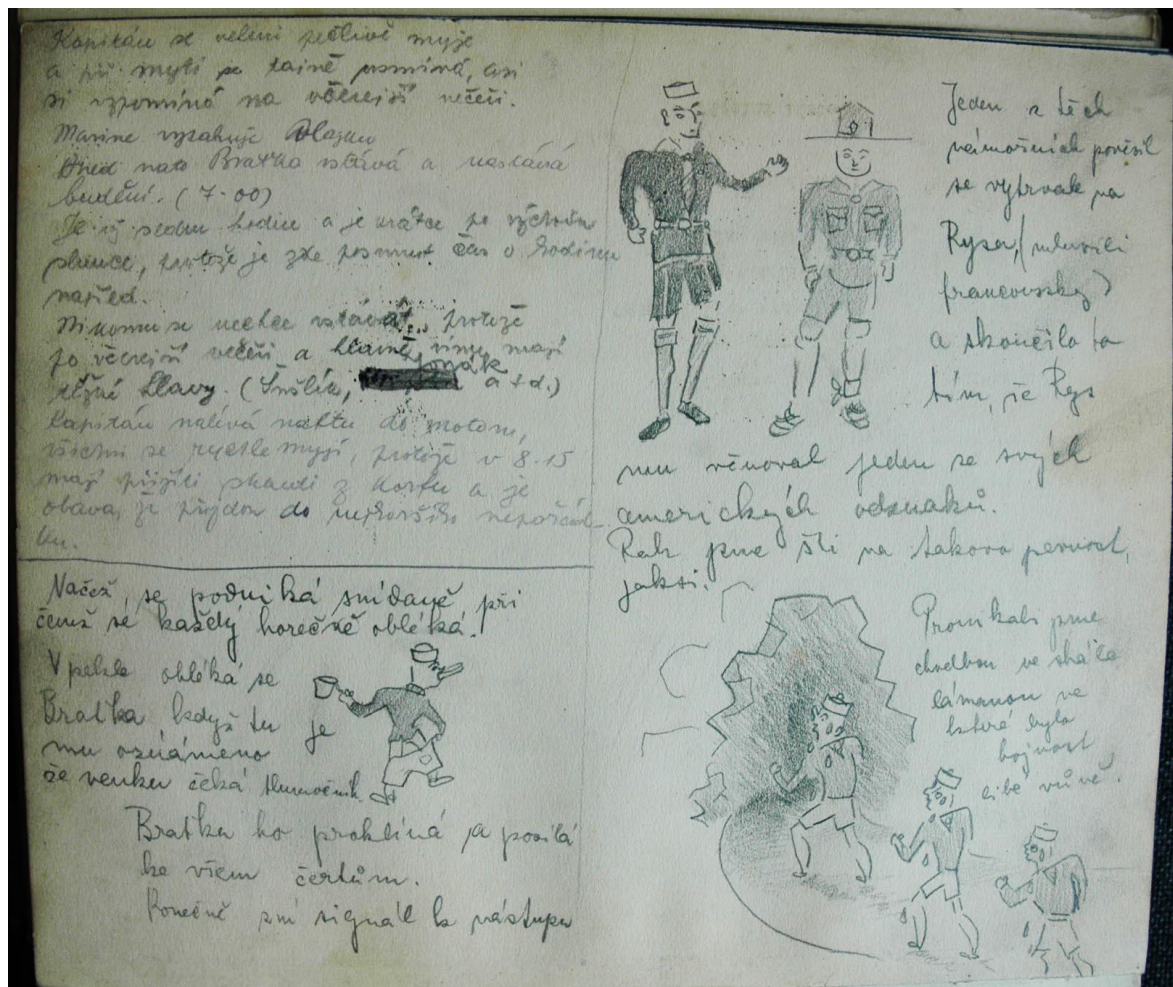 Kapitán se velmi pečlivě myje
a při mytí se tajně usmívá, asi
si vzpomíná na včerejší večeři.
Marine vytahuje vlajku
Hned nato Bratka vstává a nastává
budění. (7.00)
Je již sedm hodin a je krátce po východu
slunce, protože je zde posunut čas o hodinu
napřed.
Nikomu se nechce vstávat, protože
po včerejší večeři a hlavně vínu mají
těžké hlavy. (Šnślík, a t.d.)
Kapitán nalívá naftu do motoru,
všichni se rychle myjí, protože v 8.15
mají přijíti skauti z Korfu a je
obava, že přijdou do nejhoršího nepořád-
ku.
Načež se podniká snídaně při
čemž se každý horečně obléká.
V pekle obléká se
Bratka když tu je
mu oznámeno
že venku čeká tlumočník.
Bratka ho proklíná a posílá
ke všem čertům.
Konečně zní signál k nástupu
Jeden z těch
námořních pověsil
se vytrvale na
Rysa, (mluvili
francouzsky)
a skončilo to
tím, že Rys
mu věnoval jeden ze svých
amerických odznaků.
Pak jsme šli na takovou pevnost,
jaksi.
Pronikali jsme
chodbou ve skále
lámanou ve
které bylo
hojnost
libé vůně.